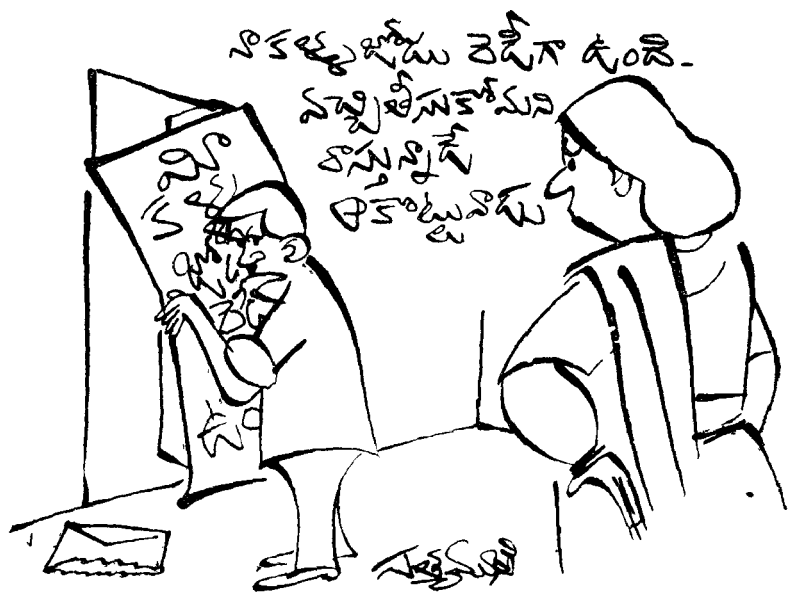 నా కళ్ళజోడు రెడీగా ఉంది-
వచ్చి తీసుకోమని
రాస్తున్నాడే
ఆ కొట్టువాడు
మీ
కళ్ళ
జోడు
రెడీ
సత్యమూర్తి